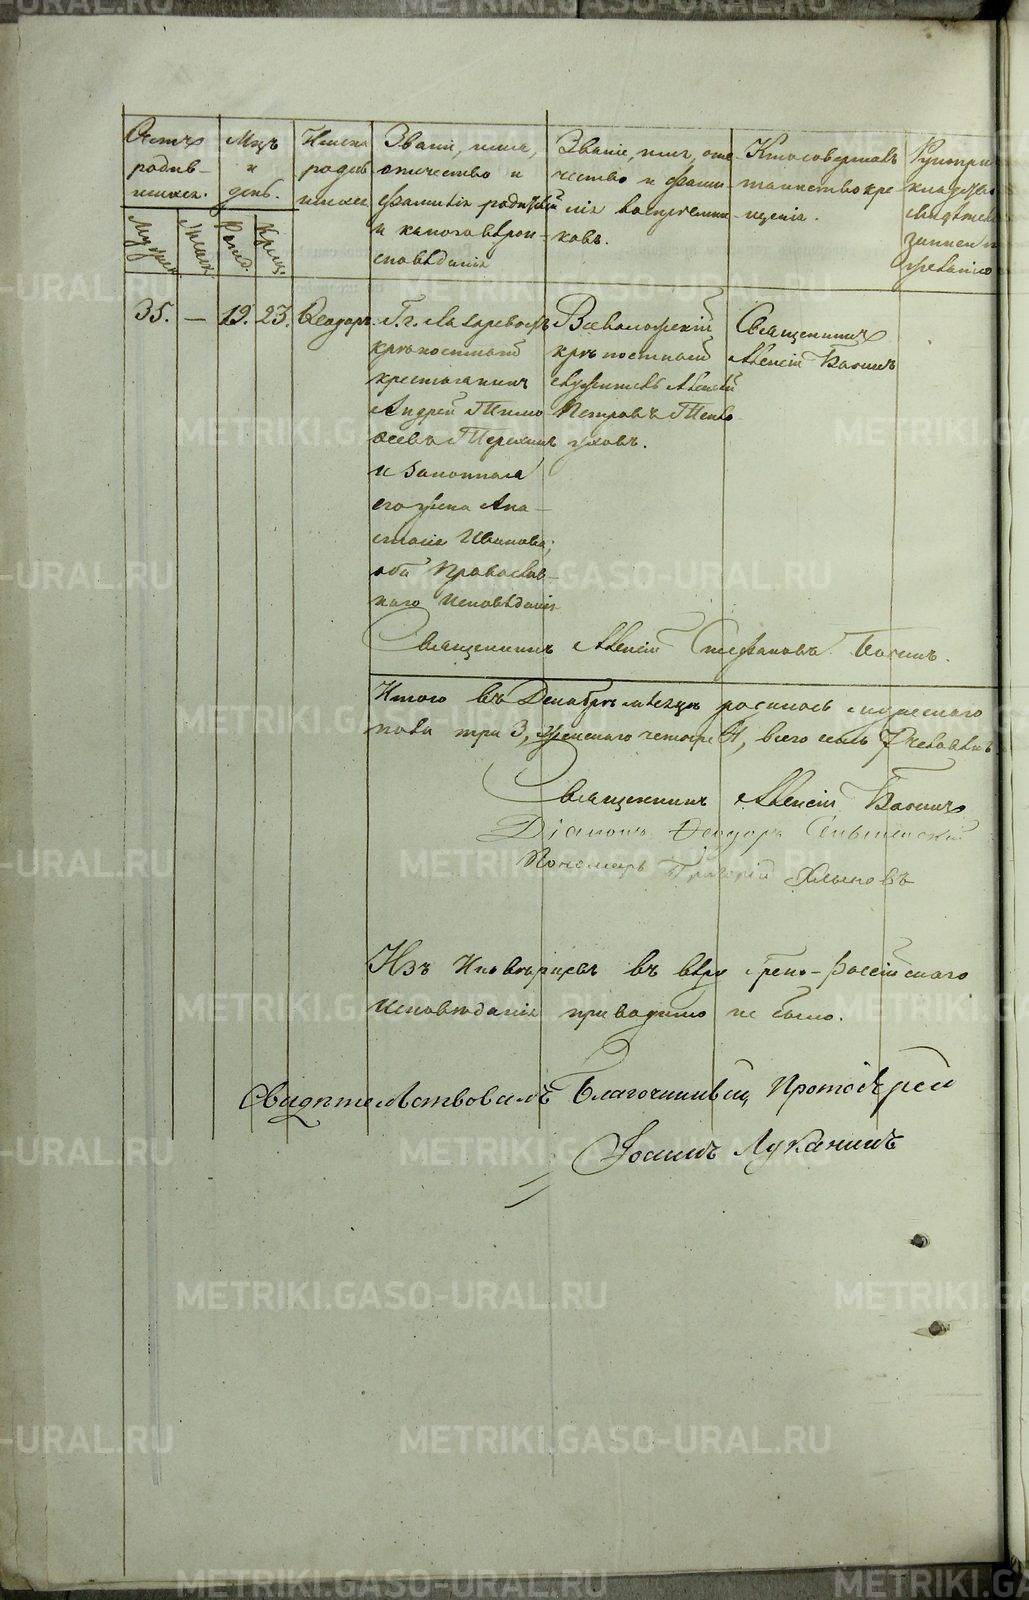 Счетъ родив-шихся.
Мцъ и день.
Имена родив шихся
Званіе, имя, отчество и фамилія родителей и какого вѣроисповѣданія
Званіе, имя, отчество и фамилія воспріемниковъ.
Кто совершалъ таинство крещенія.
Муж.
Женск.
Рожд.
Крещ.
35. — 19. 23. Ѳеодоръ.
Г. г. Лазаревыхъ
крѣпостной
крестьянинъ
Андрей Тимо
ѳеевъ Терехинъ
и законная
его жена Ана-
стасія Иванова;
оба Православ-
наго исповѣданія
Всеволожскій
крѣпостной
служитель Алексѣй
Петровъ
Священникъ
Алексій
Священникъ Алексій Стефановъ
Итого въ Декабрѣ мѣсяцѣ родилось мужескаго
пола три 3, женскаго четыре 4, всего семь 7 человѣкъ.
Священникъ Алексій
Діаконъ Ѳеодоръ
Пономарь Григорій
Изъ Иновѣрцевъ въ вѣру Греко-Россійскаго
Исповѣданія приводимо не было.
Свидѣтельствовалъ Благочинный, Протоіерей
Іоаннъ Луканинъ
METRIKI.GASO-URAL.RU